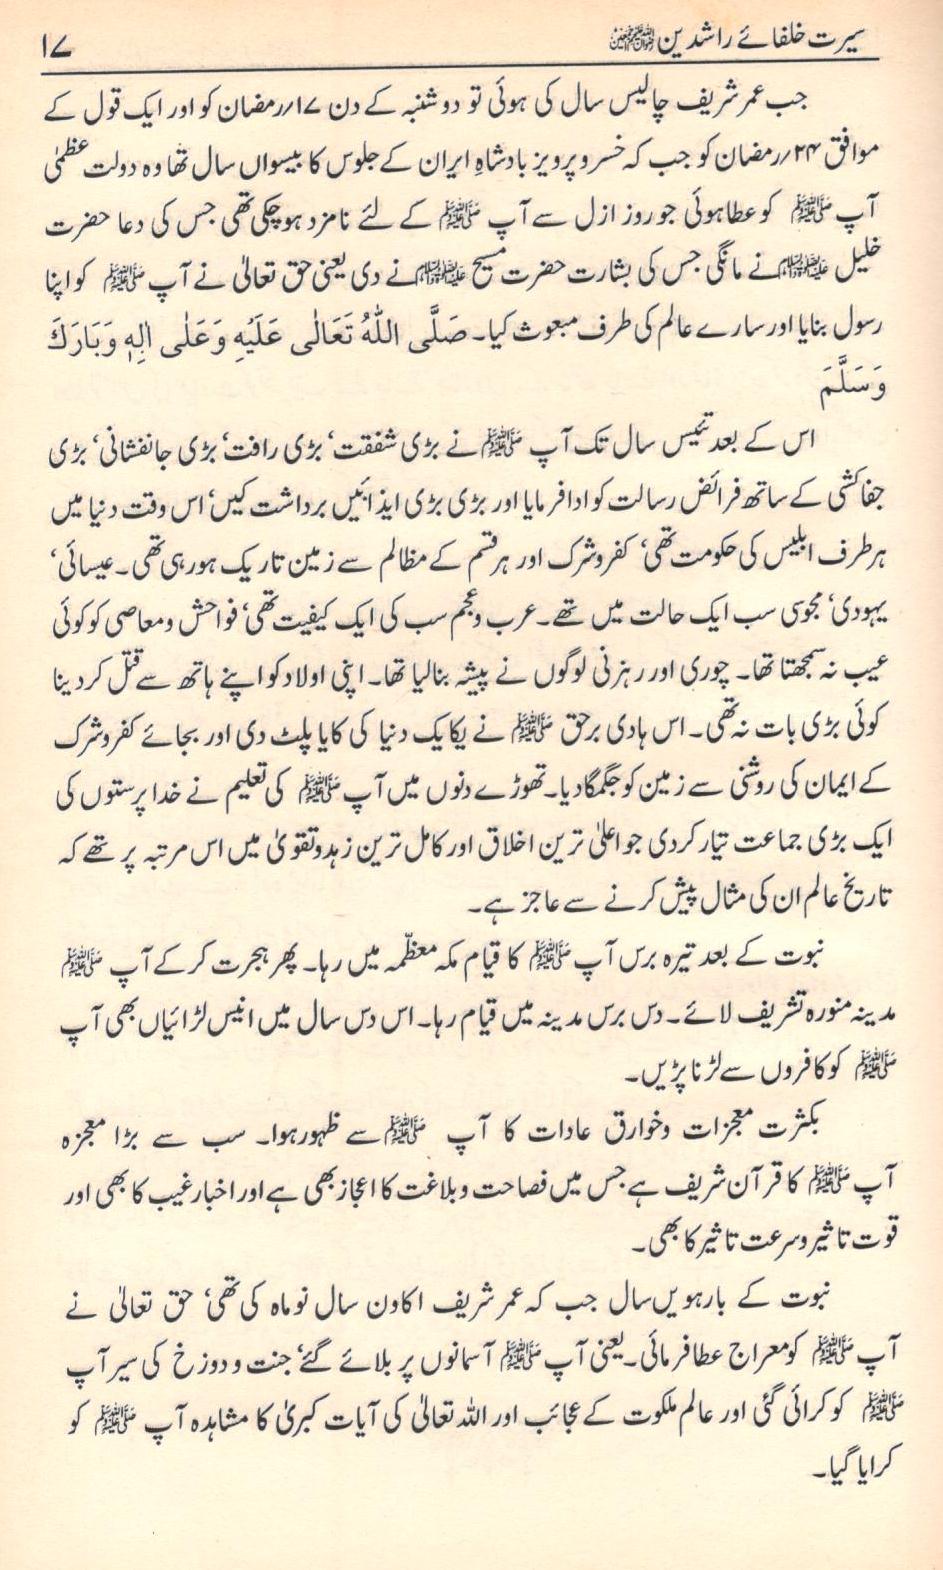 سیرت خلفائے راشدین رضوان اللہ علیہم اجمعین ۱۷
جب عمر شریف چالیس سال کی ہوئی تو دوشنبہ کے دن ۱۷/رمضان کو اور ایک قول کے
موافق ۲۴/رمضان کو جب کہ خسرو پرویز بادشاہِ ایران کے جلوس کا بیسواں سال تھا وہ دولت عظمٰی
آپ ﷺ کو عطا ہوئی جو روز ازل سے آپ ﷺ کے لئے نامزد ہوچکی تھی جس کی دعا حضرت
خلیل علیہ الصلوٰۃ والسلام نے مانگی جس کی بشارت حضرت مسیح علیہ الصلوٰۃ والسلام نے دی یعنی حق تعالیٰ نے آپ ﷺ کو اپنا
رسول بنایا اور سارے عالم کی طرف مبعوث کیا۔ صَلَّی اللّٰہُ تَعَالٰی عَلَیْہِ وَعَلٰی اٰلِہٖ وَبَارَکَ
وَسَلَّمَ
اس کے بعد تئیس سال تک آپ ﷺ نے بڑی شفقت‘ بڑی رافت‘ بڑی جانفشانی‘ بڑی
جفاکشی کے ساتھ فرائض رسالت کو ادا فرمایا اور بڑی بڑی ایذائیں برداشت کیں‘ اس وقت دنیا میں
ہر طرف ابلیس کی حکومت تھی‘ کفر و شرک اور ہر قسم کے مظالم سے زمین تاریک ہورہی تھی۔ عیسائی‘
یہودی‘ مجوسی سب ایک حالت میں تھے۔ عرب و عجم سب کی ایک کیفیت تھی‘ فواحش و معاصی کو کوئی
عیب نہ سمجھتا تھا۔ چوری اور رہزنی لوگوں نے پیشہ بنالیا تھا۔ اپنی اولاد کو اپنے ہاتھ سے قتل کر دینا
کوئی بڑی بات نہ تھی۔ اس ہادی برحق ﷺ نے یکایک دنیا کی کایا پلٹ دی اور بجائے کفر و شرک
کے ایمان کی روشنی سے زمین کو جگمگا دیا۔ تھوڑے دنوں میں آپ ﷺ کی تعلیم نے خدا پرستوں کی
ایک بڑی جماعت تیار کردی جو اعلیٰ ترین اخلاق اور کامل ترین زہد و تقویٰ میں اس مرتبہ پر تھے کہ
تاریخ عالم ان کی مثال پیش کرنے سے عاجز ہے۔
نبوت کے بعد تیرہ برس آپ ﷺ کا قیام مکہ معظّمہ میں رہا۔ پھر ہجرت کرکے آپ ﷺ
مدینہ منورہ تشریف لائے۔ دس برس مدینہ میں قیام رہا۔ اس دس سال میں انیس لڑائیاں بھی آپ
ﷺ کو کافروں سے لڑنا پڑیں۔
بکثرت معجزات و خوارق عادات کا آپ ﷺ سے ظہور ہوا۔ سب سے بڑا معجزہ
آپ ﷺ کا قرآن شریف ہے جس میں فصاحت و بلاغت کا اعجاز بھی ہے اور اخبار غیب کا بھی اور
قوت تاثیر و سرعت تاثیر کا بھی۔
نبوت کے بارہویں سال جب کہ عمر شریف اکاون سال نو ماہ کی تھی‘ حق تعالیٰ نے
آپ ﷺ کو معراج عطا فرمائی۔ یعنی آپ ﷺ آسمانوں پر بلائے گئے‘ جنت و دوزخ کی سیر آپ
ﷺ کو کرائی گئی اور عالم ملکوت کے عجائب اور اللہ تعالیٰ کی آیات کبریٰ کا مشاہدہ آپ ﷺ کو
کرایا گیا۔